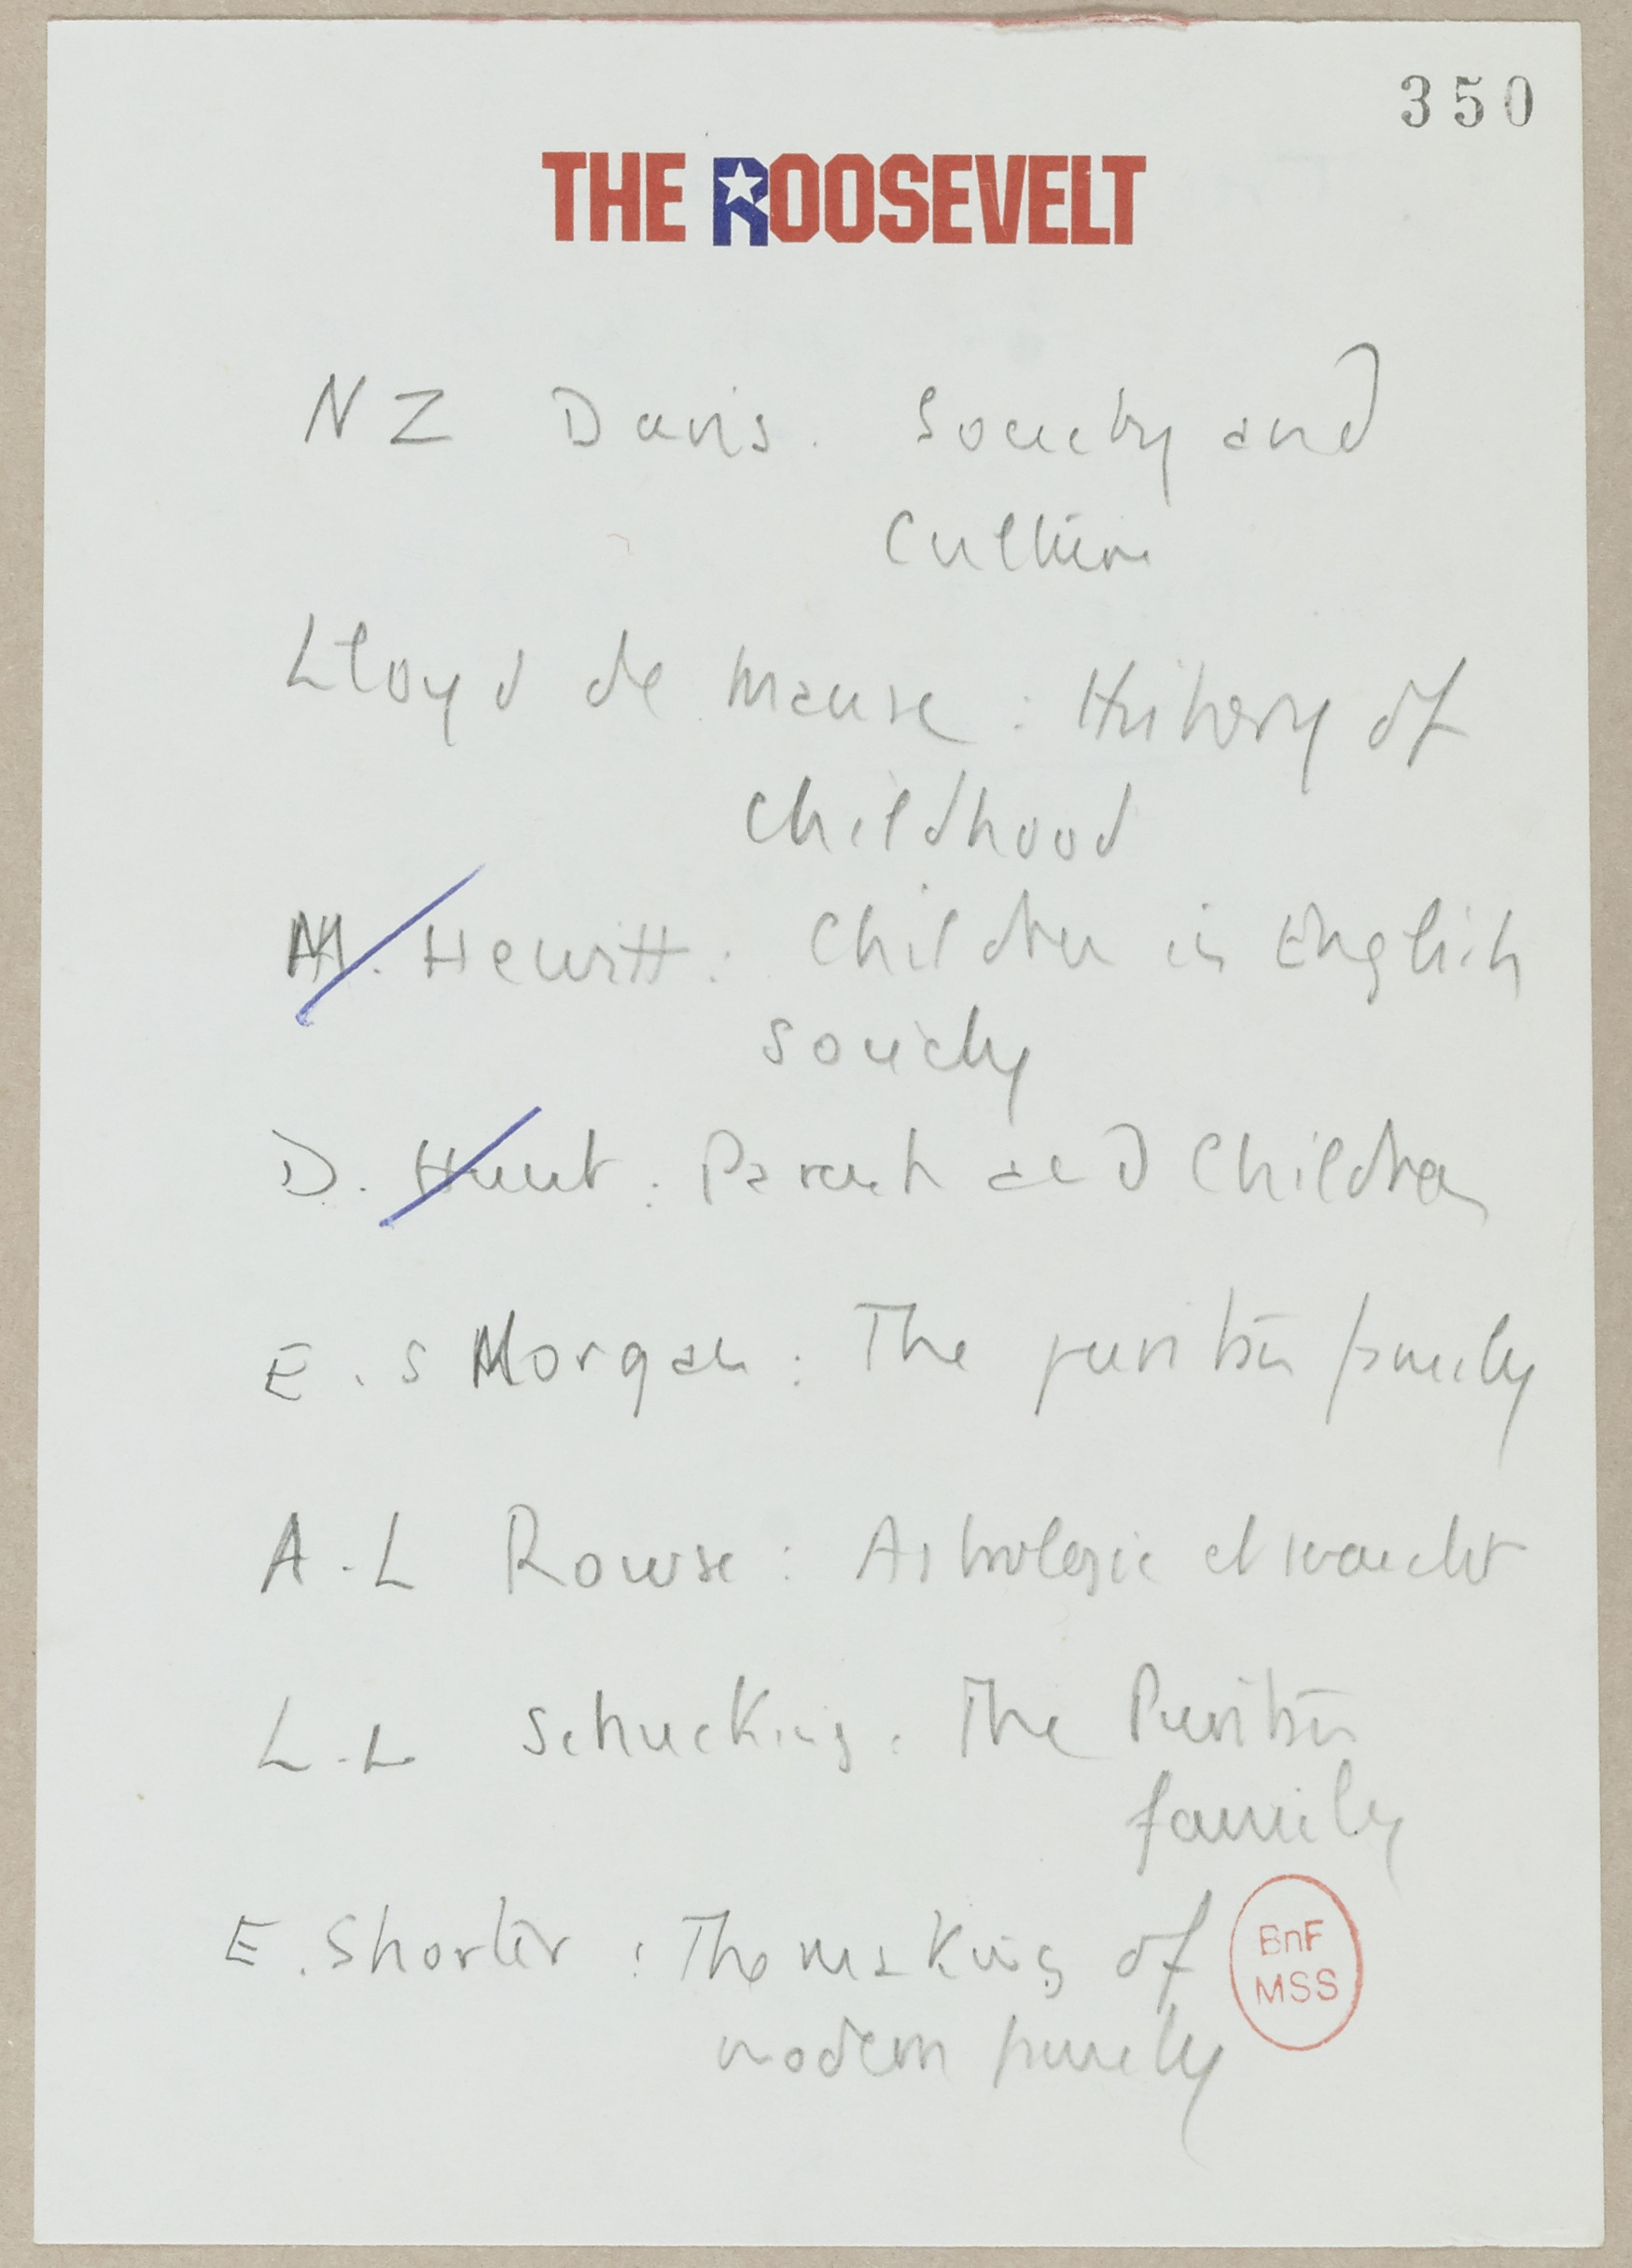 350
THE ROOSEVELT
N Z Davis. Society and
Culture
Lloyd de Mause : History of
Childhood
M. Hewitt : Children in English
Society
D. Hunt : Parents and Children
E. S Morgan : The puritan family
A. L Rowse : Astrologie et
L. L Schucking : The Puritan
family
E. Shorter : The making of
modern family
BnF
MSS